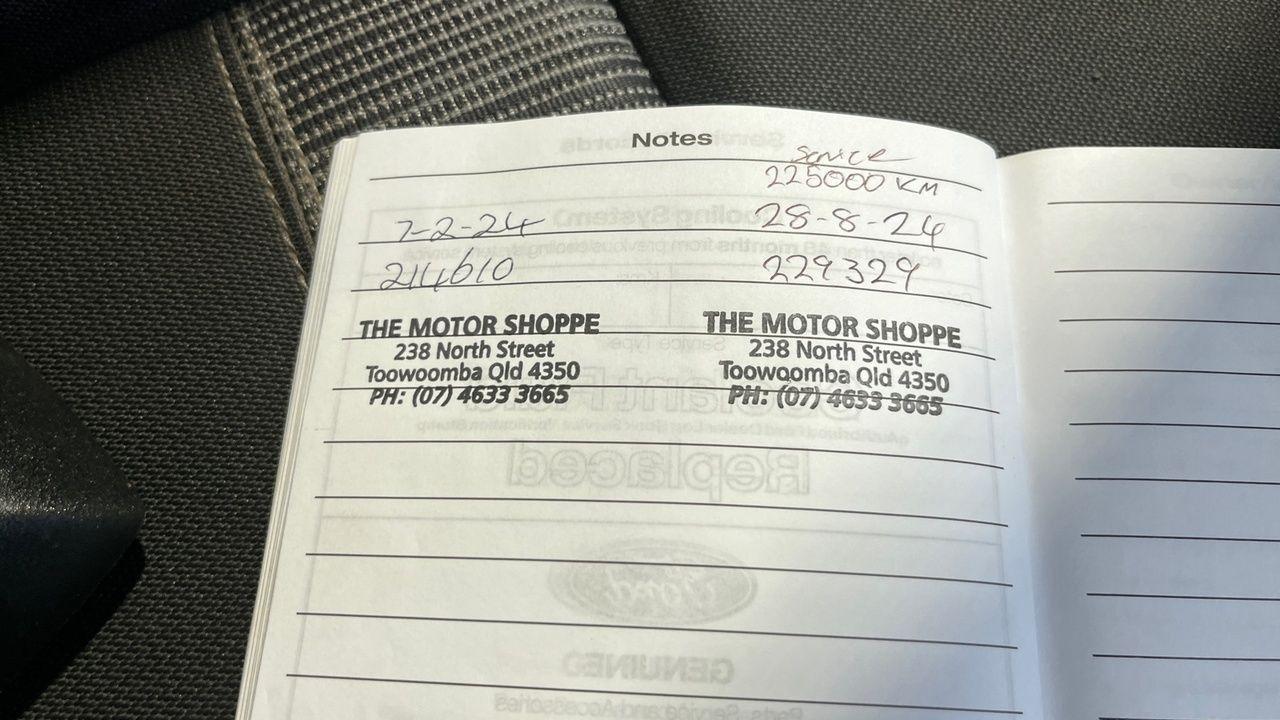 Notes
Service
225000 KM
7-2-24
214610
THE MOTOR SHOPPE
238 North Street
Toowoomba Qld 4350
PH: (07) 4633 3665
28-8-24
229329
THE MOTOR SHOPPE
238 North Street
Toowoomba Qld 4350
PH: (07) 4633 3665
Replaced
Ford
GENUINE
Parts, Service and Accessories